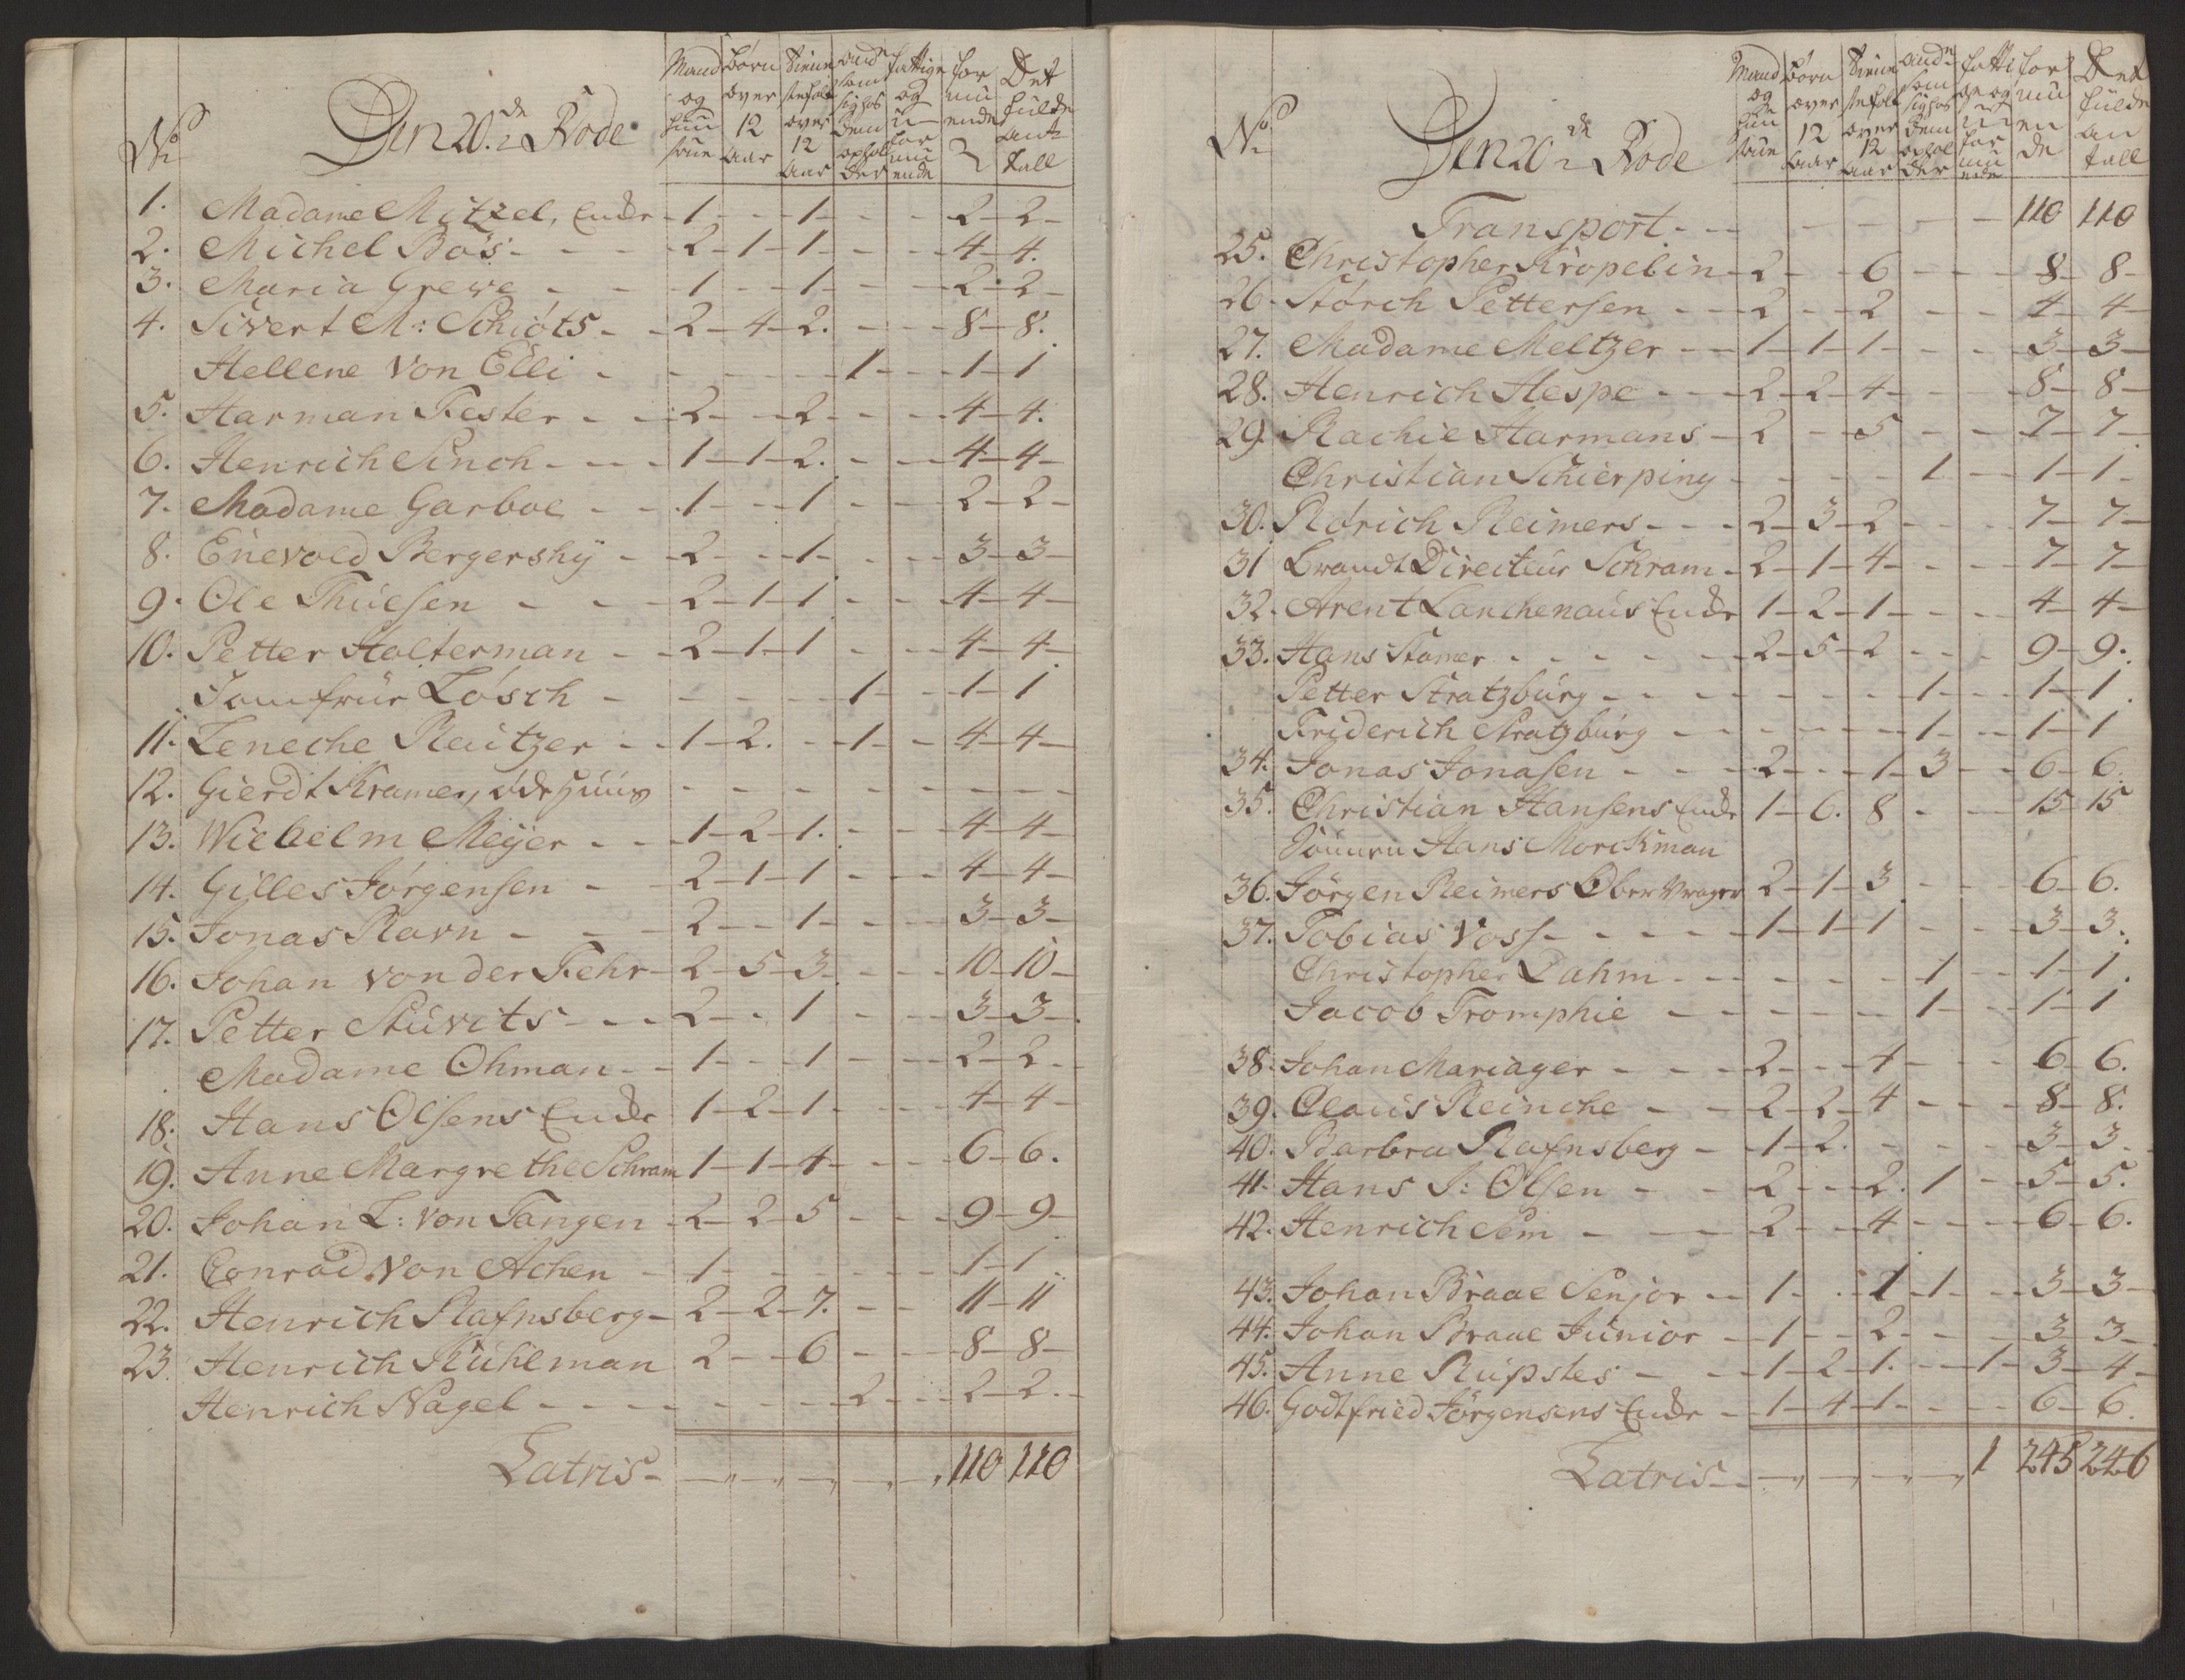 No
Den 20.de Rode
Mand og Hustrue
Børn over 12 Aar
Tienestefolk over 12 Aar
andre som sig hos dem opholder
fattige og uformuende
formuende
Det fulde antall
1. Madame Mitzel, Enke - 1 - - 1 - - - 2 - 2 -
2. Michel Bøs - - - 2 - 1 - 1 - - - 4 - 4.
3. Maria Grewe - - 1 - - 1 - - - 2 - 2 -
4. Sivert M: Schiøts - - 2 - 4 - 2. - - - 8 - 8.
Hellene Von Elli - - - - - 1 - - 1 - 1
5. Harman Fester - - 2 - - 2 - - - 4 - 4.
6. Henrich Sinch - - - 1 - 1 - 2. - - - 4 - 4 -
7. Madame Garboe - - 1 - - 1 - - - 2 - 2 -
8. Enevold Bergershÿ - 2 - - 1 - - - 3 - 3 -
9. Ole Thuesen - - 2 - 1 - 1 - - - 4 - 4 -
10. Petter Holterman - - 2 - 1 - 1 - - - 4 - 4 -
Jomfrue Løsch - - - - - 1 - - 1 - 1
11. Leneche Reutzer - - 1 - 2. - - 1 - - 4 - 4 -
12. Gierdt Kramer, øde Huus - - - - - - - -
13. Wilhelm Meÿer - - - 1 - 2 - 1. - - - 4 - 4 -
14. Gilles Jørgensen - - 2 - 1 - 1 - - - 4 - 4 -
15. Jonas Ravn - - - 2 - - 1 - - - 3 - 3 -
16. Johan von der Fehr - 2 - 5 - 3 - - - 10 - 10 -
17. Petter Stuvits - - - 2 - - 1 - - - 3 - 3 -
Madame Ohman - - 1 - - 1 - - - 2 - 2 -
18. Hans Olsens Enke 1 - 2 - 1 - - - 4 - 4 -
19. Anne Margrethe Schram 1 - 1 - 4 - - - 6 - 6.
20. Johan L: von Tangen - 2 - 2 - 5 - - - 9 - 9 -
21. Conrad von Achen - 1 - - - - - 1 - 1
22. Henrich Rafnsberg - 2 - 2 - 7. - - - 11 - 11
23. Henrich Kuhlman 2 - - 6 - - - 8 - 8 -
Henrich Nagel - - - - - - 2 - - 2 - 2 -
Latris - - - - - 110 110
No
Den 20de Rode
Mand og Hustrue
Børn over 12 Aar
Tienestefolk over 12 Aar
andre som sig hos dem opholder
fattige og uformuende
formuende
Det fulde antall
Transport - - - - - - - 110 110
25. Christopher Kröpelin - 2 - - 6 - - - 8 - 8 -
26. Størch Pettersen - - 2 - - 2 - - - 4 - 4 -
27. Madame Meltzer - - 1 - 1 - 1 - - - 3 - 3 -
28. Henrich Hespe - - - 2 - 2 - 4 - - - 8 - 8 -
29. Rachie Harmans - 2 - - 5 - - - 7 - 7 -
Christian Schierping - - - - 1 - - 1 - 1 -
30. Rørich Reimers - - - 2 - 3 - 2 - - - 7 - 7 -
31 Brandt Directeur Schram - 2 - 1 - 4 - - - 7 - 7 -
32. Arent Lanckenaus Enke 1 - 2 - 1 - - - 4 - 4 -
33. Hans Stamer - - - - - 2 - 5 - 2 - - - 9 - 9.
Petter Stratzburg - - - - - - 1 - - 1 - 1.
Friderich Stratzburg - - - - - - 1 - - 1 - 1
34. Jonas Jonasen - - - 2 - - 1 - 3 - - 6 - 6.
35. Christian Hansens Enke 1 - 6. 8 - - - 15 - 15
Sønnen Hans Morckman
36. Jörgen Reimers Ober Vrager 2 - 1 - 3 - - - 6 - 6.
37. Tobias Voss - - - - - 1 - 1 - 1 - - - 3 - 3.
Christopher Dahm - - - - - - 1 - - 1 - 1.
Jacob Tromphie - - - - - - 1 - - 1 - 1
38. Johan Mariager - - - 2 - - 4 - - - 6 - 6.
39. Claus Reinche - - 2 - 2 - 4 - - - 8 - 8.
40. Barbra Rafnsberg - - 1 - 2. - - - - 3 - 3 -
41. Hans J: Olsen - - 2 - - 2. 1 - - 5 - 5.
42. Henrich Sem - - - 2 - - 4 - - - 6 - 6.
43. Johan Braae Senjor - - 1 - - 1 - 1 - - 3 - 3 -
44. Johan Braae Junior - 1 - - 2 - - - 3 - 3 -
45. Anne Rupstes - - - 1 - 2 - 1. - - 1 - 3 - 4 -
46. Godtfried Jørgensens Enke - 1 - 4 - 1 - - - 6 - 6.
Latris - - - - - 1 245 246